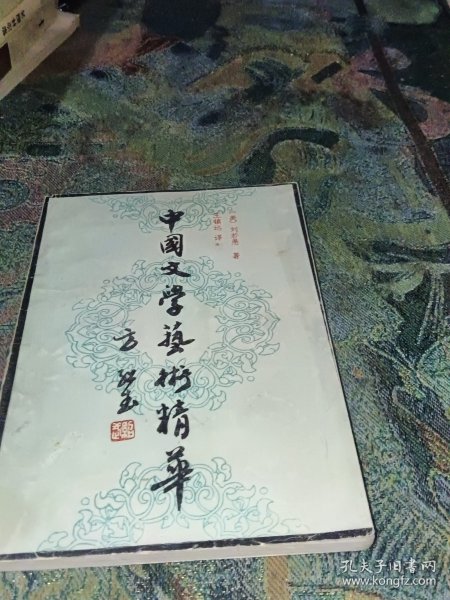 〔美〕刘若愚 著
王镇远 译
中國文學藝術精華
方毅
孔夫子旧书网
www.kongfz.com